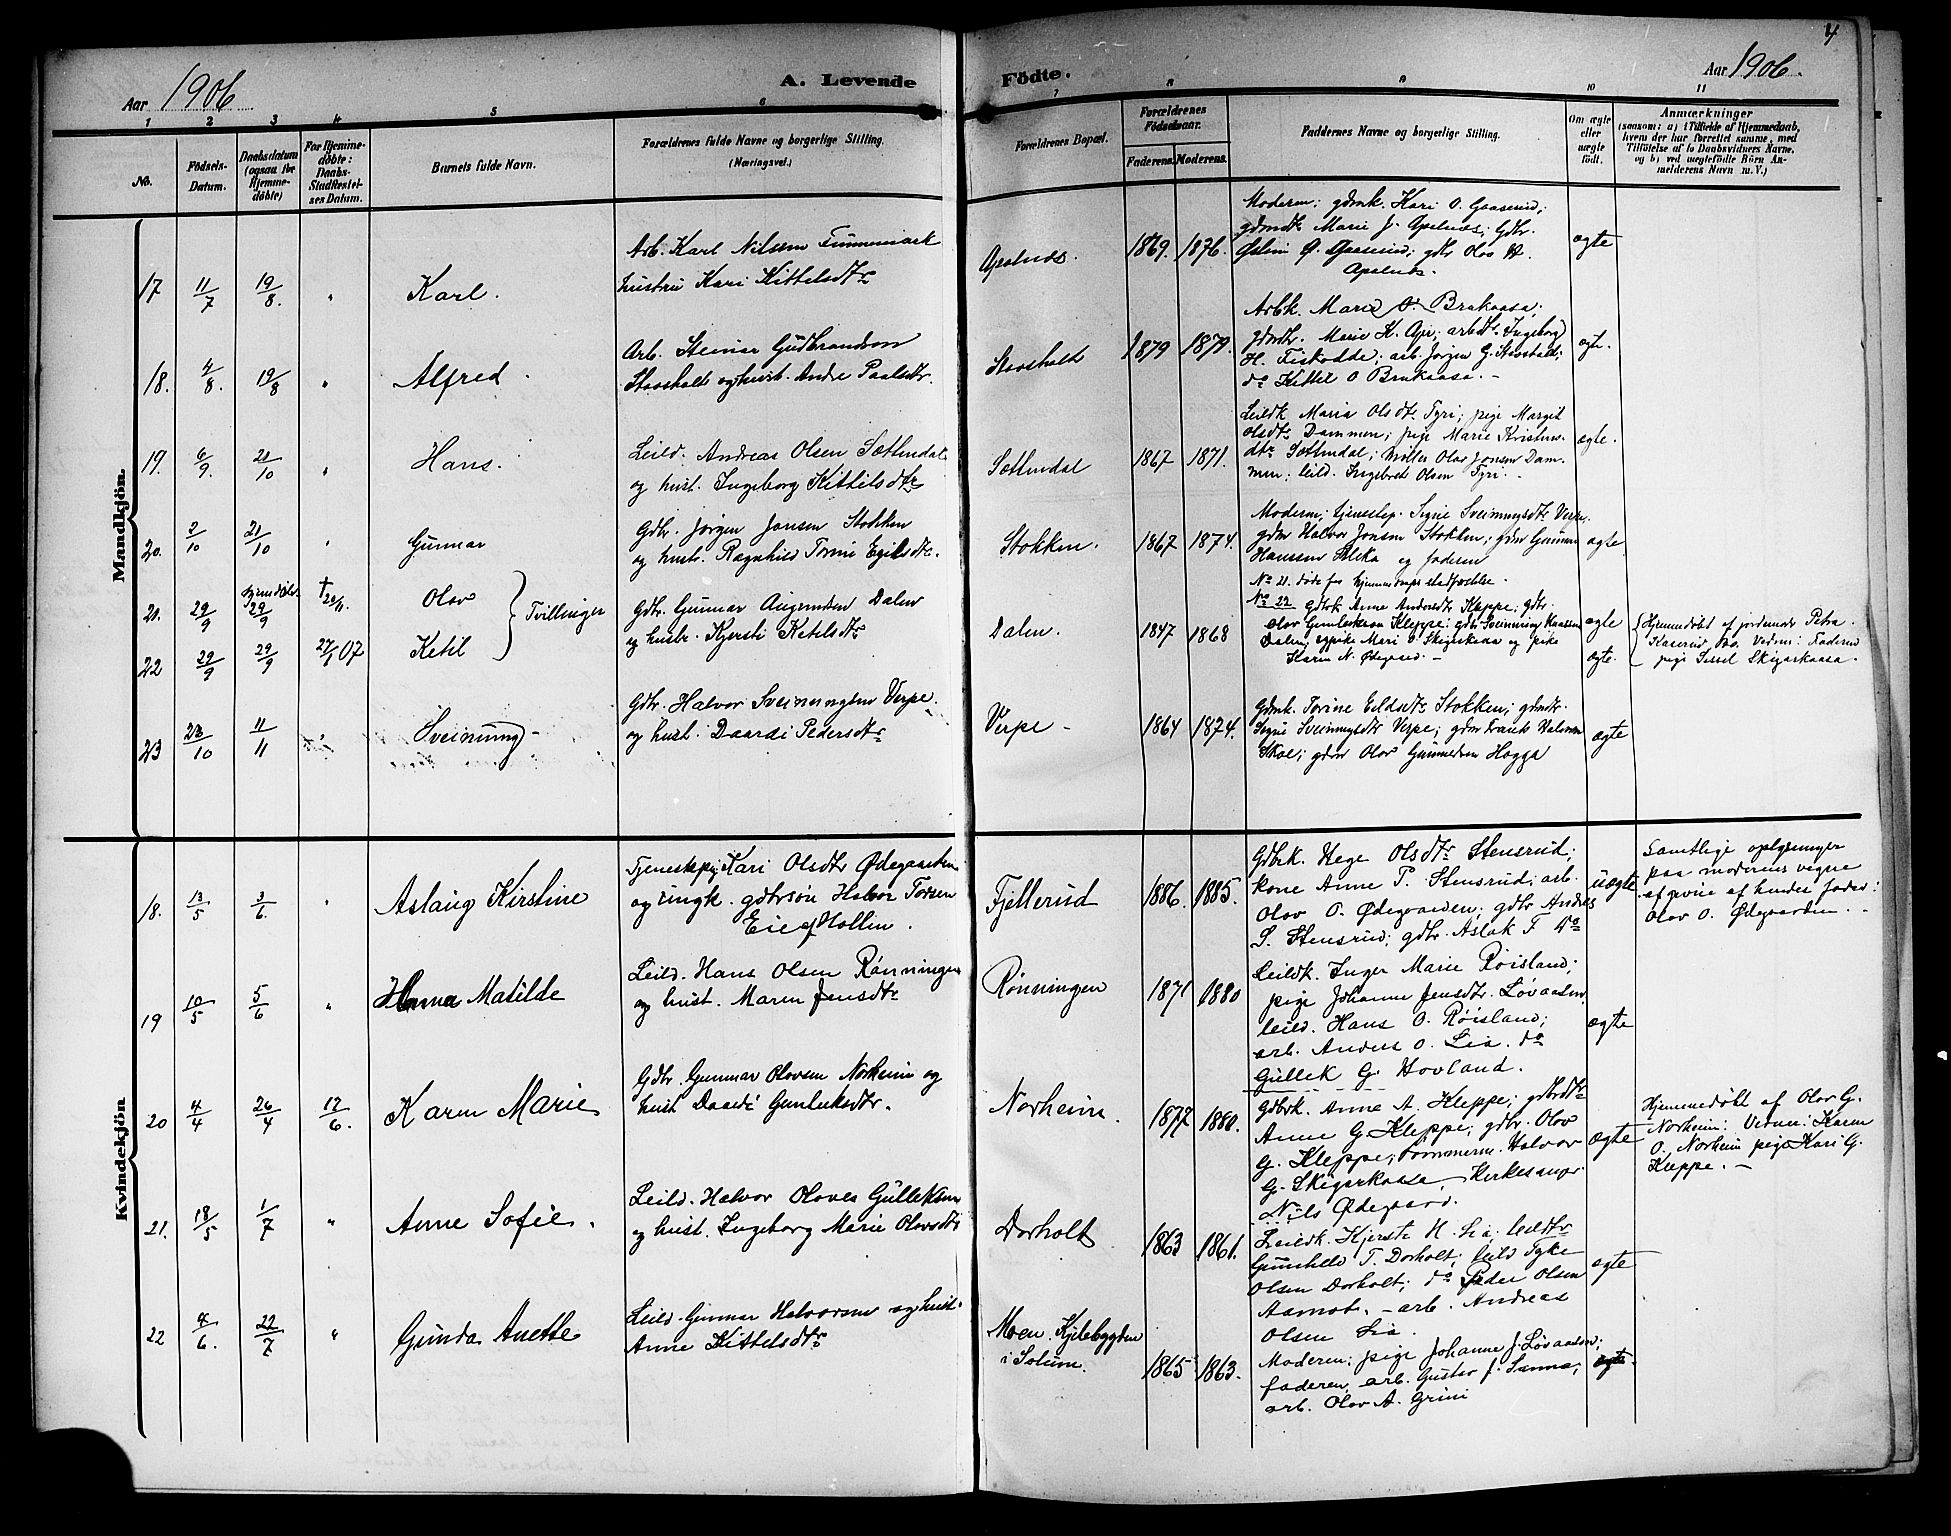 4
Aar 1906
A. Levende
Födte.
Aar 1906.
1 2 3 4 5 6 7 8 9 10 11
No.
Födsels-Datum.
Daabsdatum (ogsaa for Hjemme-döbte)
For Hjemme-döbte: Daabs-Stadfæstel-ses Datum.
Barnets fulde Navn.
Forældrenes fulde Navne og borgerlige Stilling.
(Næringsvei.)
Forældrenes Bopæl.
Forældrenes Födselsaar.
Faderens. Moderens.
Faddernes Navne og borgerlige Stilling.
Om ægte eller uægte födt.
Anmærkninger
(saasom: a) i Tilfælde af Hjemmedaab,
hvem der har forrettet samme, med
Tilföielse af to Daabsvidners Navne,
og b) ved uægtefödte Börn An-
melderens Navn m. V.)
Mandkjön.
17 11/7 19/8. " Karl.
Arb. Karl Nilsen Tinnemark
hustru Kari Kittelsdtr
Apalnæs. 1869. 1876.
Moderen; gdmk. Kari O. Gaaserud;
gdmdtr Marie J. Apalnæs; Gdbr.
Gaaserud; gdbr Olav
Apalnæs.
ægte
18. 4/8. 19/8 " Alfred.
Arb. Steinar Gudbrandsen
Staasholt og hust. Andre Paalsdtr.
Staasholt 1879 1879.
Arbk. Marie O. Brukaasa;
gdmdtr. Marie K. ; arbdtr. Ingeborg
H. Fiskodde; arb. Jørgen G. Staasholt;
do Kittel O Brukaasa. -
ægte.
19. 6/9. 21/10 " Hans.
Leild. Andreas Olsen Sættendal
og hust. Ingeborg Kittelsdtr
Sættendal 1867 1871.
Leildk Maria Olsdtr Tyri; pige Margit
Olsdtr Dammen; pige Marie Kristens-
dtr Sættendal; møller Olav Jonsen Dam-
men; leild. Ingebret Olsen Tyri. -
ægte.
20. 2/10 21/10 " Gunnar
Gdbr. Jørgen Jonsen Stokken
og hustr. Ragnhild Torine Egilsdtr.
Stokken. 1867 1874.
Moderen; tjenestep. Signe Sveinungsdtr Verpe,
gdmr Halvor Jonsen Stokken; gdmr Gunnar
Hanssen og faderen
ægte.
21. 29/9 hjemdøbt 29/9 † 20/11. Olav
22 29/9 29/9 27/1 07 Ketil
Tvillinger
Gdbr. Gunnar Augundsen Dalen
og hustr. Kjersti Ketilsdtr
Dalen. 1847 1868
No 21. døde før hjemmedaaps stadfæstelse.
No 22 Gdbrk Anne Andersdtr Kleppe; gdbr.
Olav Gunleiksen Kleppe; gdbr Sveinung Hansen
Dalen; pike Mari O. Skigarkaasa og pike
Karen N. Ødegaard. -
ægte
ægte.
Hjemmedøbt af jordemor Petra
Kaserud Bø. Vedner: Faderen
pige Sissel Skigarkaasa.
23 23/10 11/11 " Sveinung -
Gdbr. Halvor Sveinungsen Verpe.
og hust. Daardi Pedersdtr
Verpe - 1864 1874.
Gdmk. Torine Eildsdtr Stokken; gdmdtr.
Signe Sveinungsdtr Verpe; gdmr Frank Halvorsen
Skoe; gdmr Olav Gunnarsen Hogga
ægte
Kvindekjön
18. 13/5 3/6. " Aslaug Kirstine
Tjenestepig. Kari Olsdtr Ødegaarden
og ungk. gdbrsøn Halvor Torsen
Eie af Hollen.
Fjellerud 1886. 1885.
Gdbrk. Hege Olsdtr Stensrud;
kone Anne P. Stensrud; arb.
Olav O. Ødegaarden; gdbr Andreas
S. Stensrud; gdbr. Aslak F do
uægte
Samtlige oplysninger
paa moderens vegne
afgivne af hendes fader:
Olav O. Ødegaarden.
19 10/5 5/6 " Hanna Matilde
Leild. Hans Olsen Rønningen
og hust. Maren Jensdtr
Rønningen 1871 1880
Leildk. Inger Marie Røisland;
pige Johanne Jensdtr. Løvaasen
leild. Hans O. Røisland;
arb. Anders O. Lia. do
Gullek G. Hovland.
ægte
20 4/4 26/4 17/6. Karen Marie
Gdbr. Gunnar Olavsen Norheim og
hust Daardi Gunleiksdtr.
Norheim. 1877 1880.
Gdbrk. Anne A. Kleppe; gdbrdtr
Anne G. Kleppe; gdbr. Olav
G. Kleppe; tømmerm. Halvor
G. Skigarkaasa, Kirkesanger
Nils Ødegaard.
ægte
Hjemmedøbt af Olav G.
Norheim: Vedner: Karen
O. Norheim pige Kari G.
Kleppe. -
21. 18/5 1/7 " Anne Sofie.
Leild. Halvor Olaves Gulleksen
og hust. Ingeborg Marie Olavsdtr
Dorholt 1863 1861.
Leildk. Kjerste H. Lia; leildtr
Gunhild T. Dorholt; leild Tyke
Olsen Dorholt; do Peder Olsen
Aamot. - arb. Andreas
Olsen Lia.
ægte
22 4/6. 22/7 " Gunda Anette
Leild. Gunnar Halvorsen og hust.
Anne Kittelsdtr
Moen. Kjilebygden
i Solum. 1865 1863.
Moderen; pige Johanne J. Løvaasen;
faderen, arb. Gustav J. Sanna;
arb. Olav A. Grini
ægte.